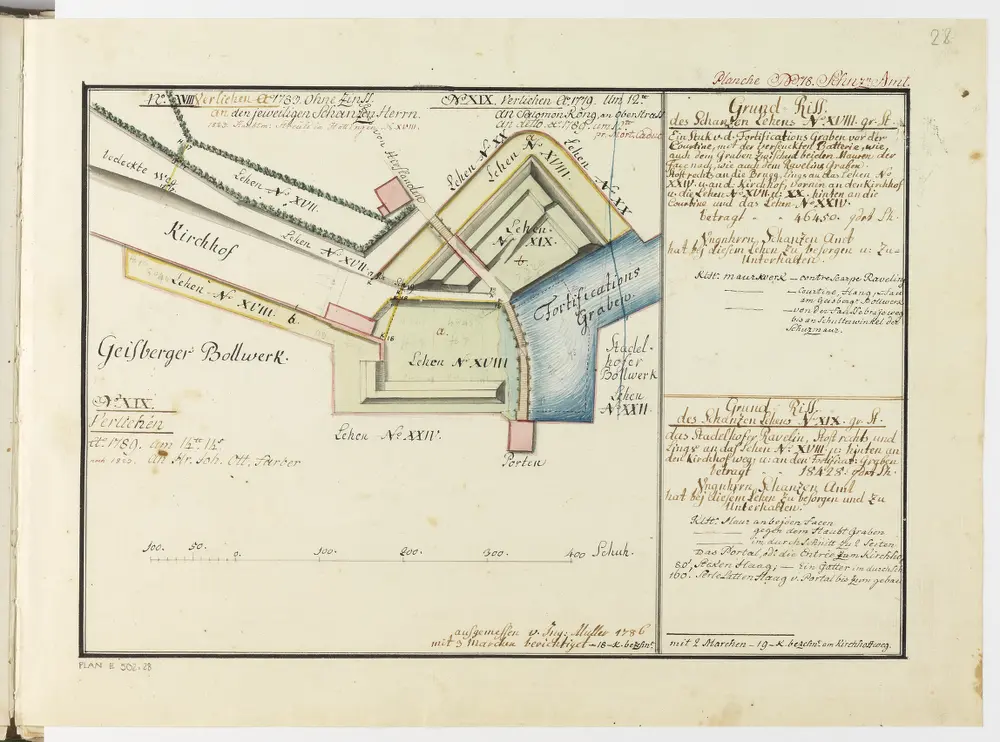 28
Planche No 78. Schnzn Amt.
No. XVIII Verlichen Ao 1789. Ohne Zinß.
an den jeweiligen Schanzen Herrn.
No. XIX. Verlichen Ao. 1779. Um 12
an Salomon König, an ober Straß
an detto Ao 1786. um
bedeckte Weg
Lehen No XVII.
von Hottingen
Lehen No XX
Lehen No XVIII.
Lehen No XX
Kirchhof
Lehen No XVII.
Lehen No XIX.
b.
Fortifications
Graben.
Lehen No XVIII b.
a.
Lehen No XVIII
Geißberger Bollwerk.
Stadel-
hofer
Bollwerk
Lehen
No XXII
No XIX
Verlichen
Ao. 1789. um 14
an Hr. Joh. Ott. Färber
Lehen No XXIV.
Porten
100. 50. 0. 100. 200. 300. 400 Schuh.
ausgemessen v. Ing. Müller 1786
mit 3 Marchen berichtiget – 18 – K. bezehnt.
Grund Riß.
des Schanzen Lehens No XVIII. gr. St.
Ein Stuk v. d. Fortifications Graben vor der
Courtine, mit der versenkten Batterie, wie
auch dem Graben zwischend beiden Mauren, der
Stoßt rechts an die Brugg, lings an das Lehen No
XXIV. u. and. Kirchhof, vornen an den Kirchhof
u. die Lehen No XVII. u. XX. hinten an die
Courtine und das Lehen No XXIV.
betragt - - 46450. qdrt Sh.
Ungnhrn Schanzen Amt
hat bej diesem Lehen zu besorgen u: Zu-
Unterhalten.
Klft. maurwerk – contrescarpe Ravelins
am Geißberger Bollwerk
bis an Schulterwinkel der
Schuzmaur.
Grund Riß
des Schanzen Lehens No XIX. gr. St.
das Stadelhofer Ravelin, Stoßt rechts und
Lings an das Lehen No XVIII. hinten an
den Kirchhof weg, u. an den Fortificat: Graben
betragt 18428. qdrt Sh.
Ungnhrn Schanzen Amt
hat bej diesem Lehen zu besorgen und zu
Unterhalten.
Klft. Maur an beyden Facen
gegen dem Haubt Graben
im durch Schnitt zu 2 Seiten
Das Portal, od. die Entrée zum Kirchhof
80' Staken Haag; – Ein Gatter im durchsch
160' Serle Latten Haag v. Portal bis zum
mit 2 Marchen – 19 – K. bezehnt. am Kirchhofweg.
PLAN E 502.28